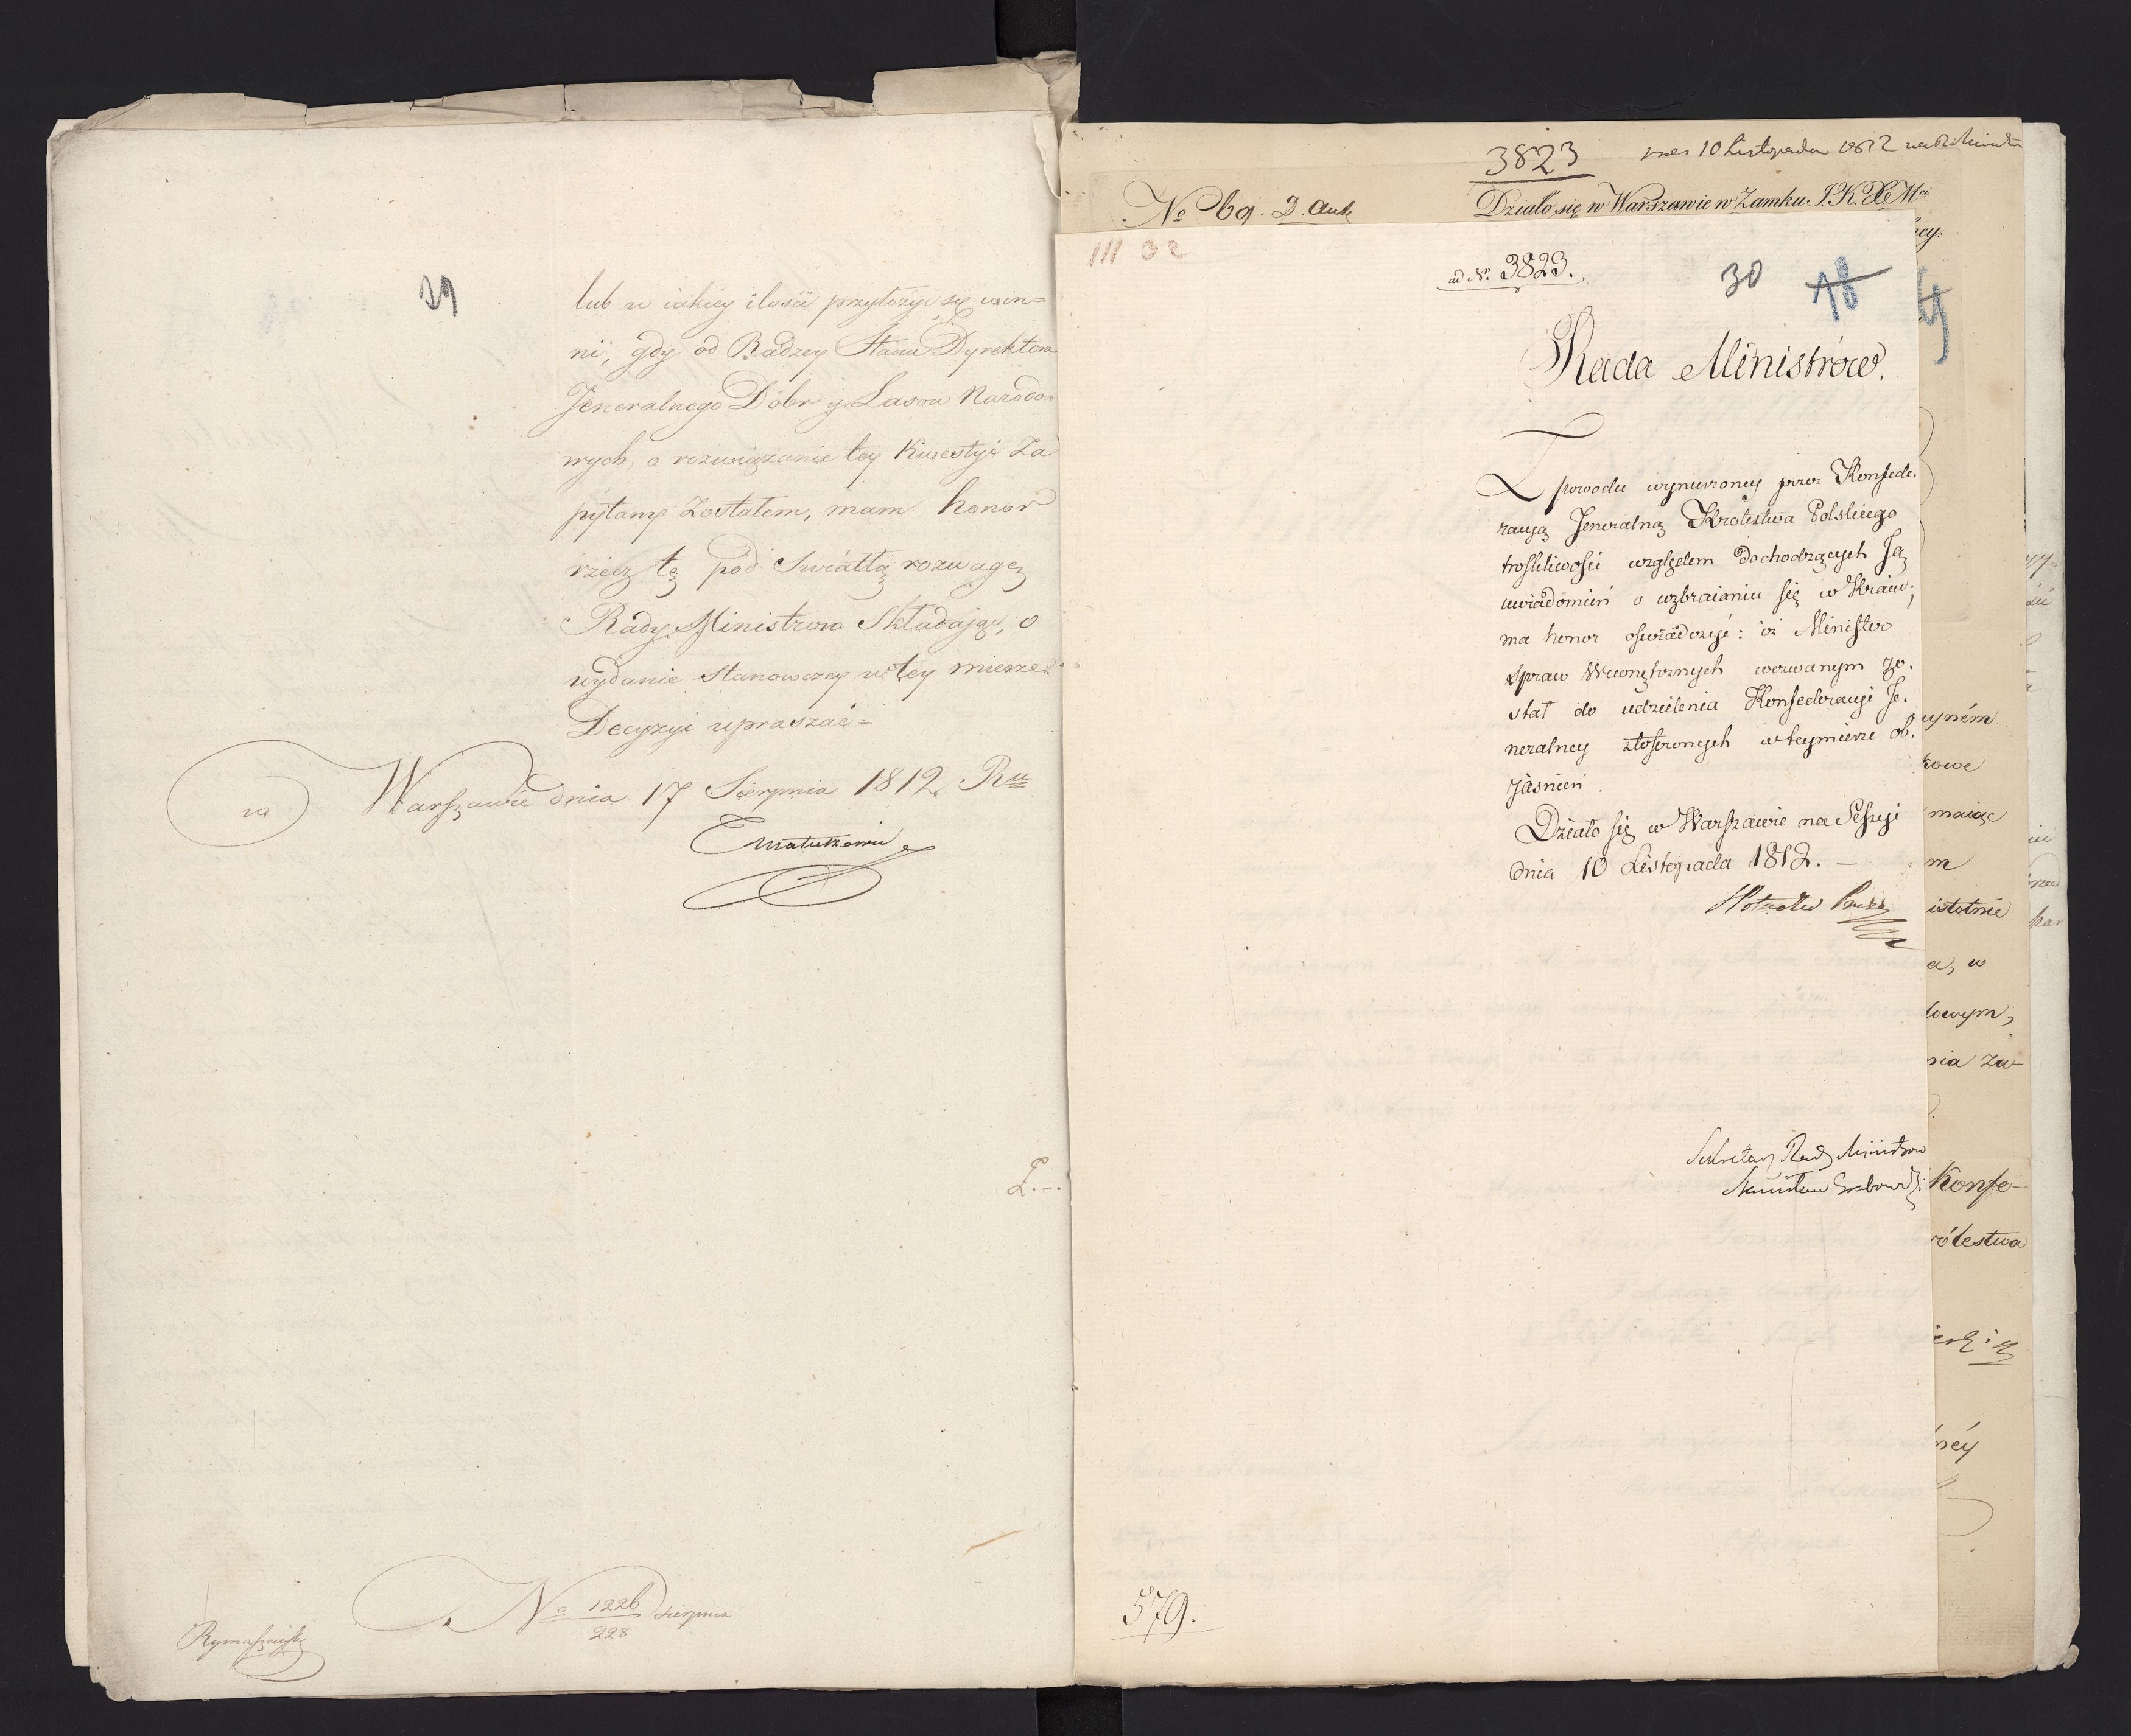 29
lub w iakiey ilości przyłożyć się win=
ni, gdy od Radzcy Stanu Dyrektora
Jeneralnego Dóbr y Lasow Narodo=
wych, o rozwiązanie tey Kwestyi Za
pytany Zostałem, mam honor
rzecz tę pod Swiatłą rozwagę
Rady Ministrow Składając, o
wydanie Stanowczey w tey mierze
Decyzyi upraszać -
w Warszawie dnia 17 Sierpnia 1812 Ru
Matuszewic
No 1226 Sierpnia
228
3823
10 Listopada 1812
No 69. D. Aut
Działo się w Warszawie w Zamku J. K. X M
III 32
ad N. 3823.
30 18
Rada Ministrów.
Z powodu wynurzoney przez Konfede-
racyą Jeneralną Królestwa Polskiego
troskliwości względem dochodzących Ją
uwiadomień o uzbraianiu się w Kraiu;
ma honor oświadczyć: iż Minister
Spraw Wewnętrznych wezwanym zo-
stał do udzielenia Konfederacyi Je-
neralney stosownych w teymierze ob-
jaśnień.
Działo się w Warszawie na Sessyi
dnia 10 Listopada 1812. -
Sekretarz Rady Ministrow
Stanisław Grabowski
579.
upném
kowe
maiąc
m
istotnie
a, w
dowym,
nia Za-
Konfe-
rólestwa
néy